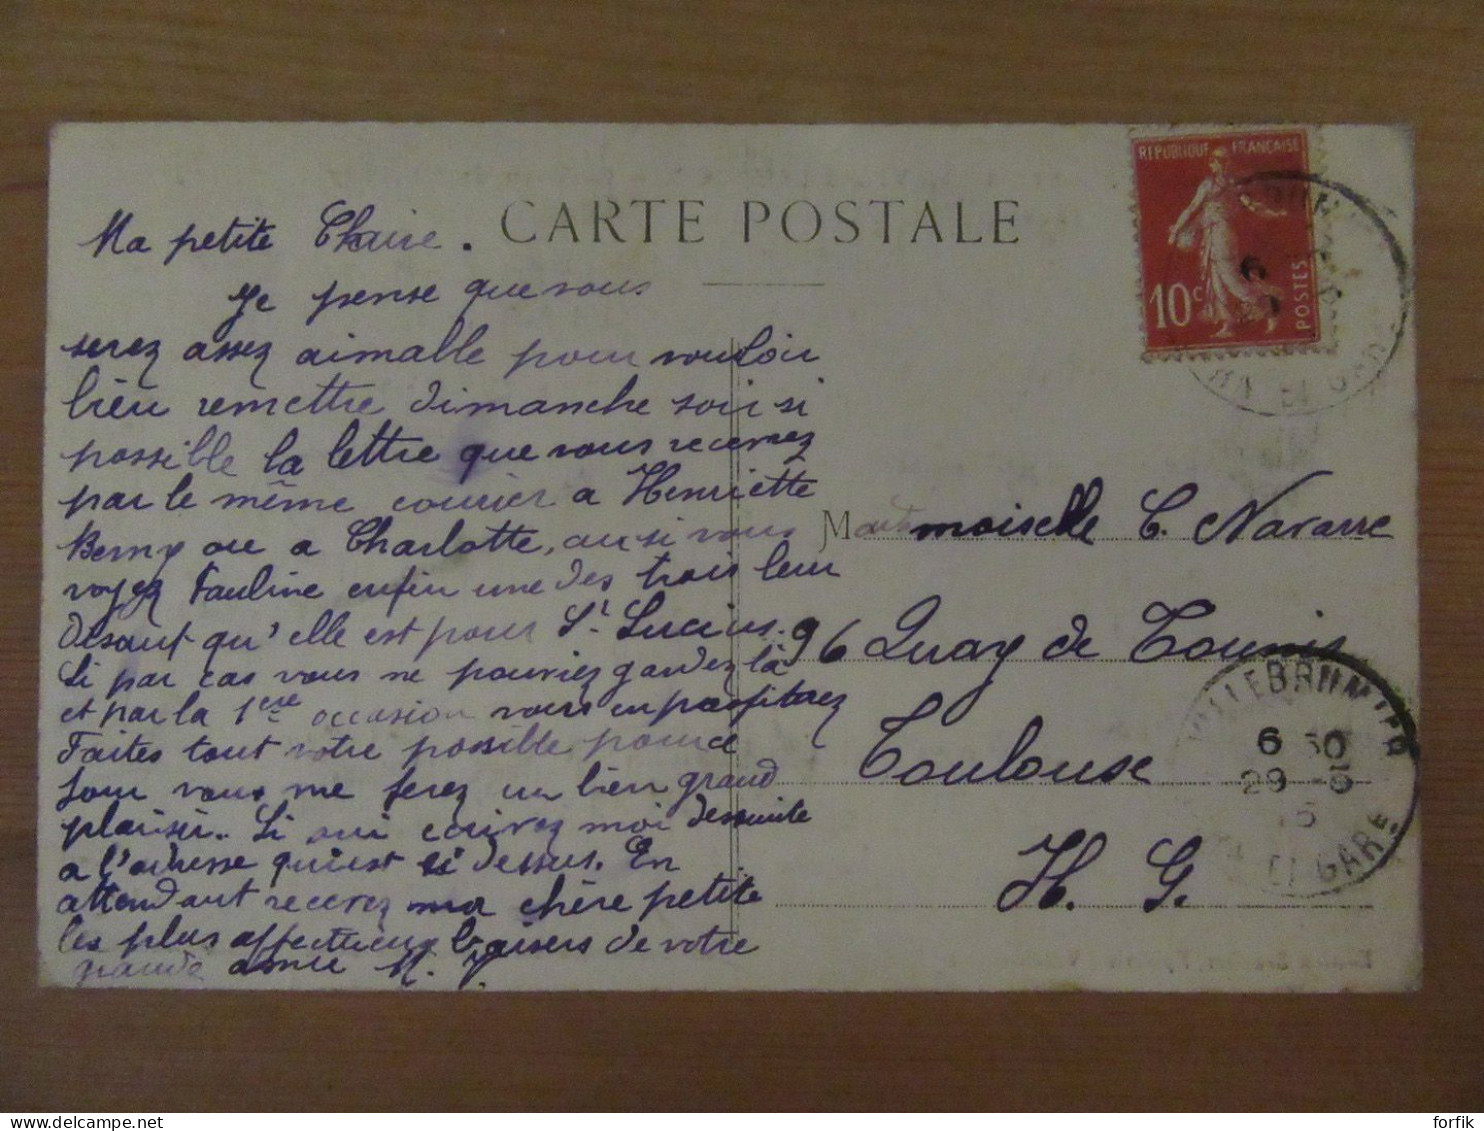 CARTE POSTALE
Ma petite Claire.
Je pense que vous
serez assez aimable pour vouloir
bien remettre dimanche soir si
possible la lettre que vous recevrez
par le même courrier a Henriette
Bemy ou a Charlotte, ou si vous
voyez Pauline enfin une des trois leur
disant qu'elle est pour St. Lucius.
Si par cas vous ne pouviez gardez là
et par la 1ere occasion vous en profiterez
Faites tout votre possible pour
vous me ferez un bien grand
plaisir. Si oui ecrivez moi dessuite
a l'adresse qui est ci dessus. En
attendant recevez ma chère petite
les plus affectueux baisers de votre
grande amie M. J.
Mademoiselle C. Navarre
96 Quay de Tounis
Toulouse
H. G.
REPUBLIQUE FRANÇAISE
10c POSTES
VILLEBRUMIER
6 30
29 -5
15
GARE
forfik